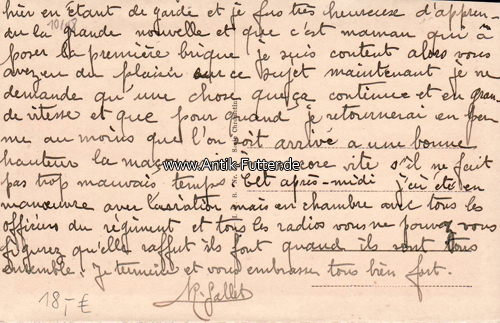 hier en étant de garde et je fus très heureuse d'appren
dre la grande nouvelle et que c'est maman qui a
poser la première brique je suis content alors vous
avez eu du plaisir sur ce sujet maintenant je ne
demande qu'une chose que ça continue et en gran
de vitesse et que pour quand je retournerai en per
me au moins que l'on soit arrivé a une bonne
hauteur la encore vite s'il ne fait
pas trop mauvais temps. Cet après-midi j'ai été en
manœuvre avec mais en chambre avec tous les
officiers du régiment et tous les radios vous ne pouvez vous
figurez qu'elle raffut ils font quand il sont tous
ensemble. Je termine et vous embrasse tous bien fort.
R. Gallet
18,- €
www.Antik-Futter.de